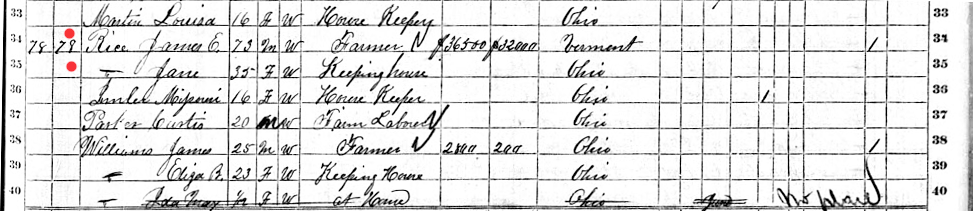 33 Martin Louisa 16 F W House Keeper Ohio 33
34 78 78 Rice James E. 73 M W Farmer Vermont 1 34
35 — Jane 35 F W Keeping house Ohio 35
36 16 F W House Keeper Ohio 1 36
37 Parker Curtis 20 M W Farm Laborer Ohio 37
38 Williams James 25 M W Farmer 200 Ohio 1 38
39 — Eliza B. 23 F W Keeping House Ohio 39
40 — Ida May F W at Home Ohio June No place 40